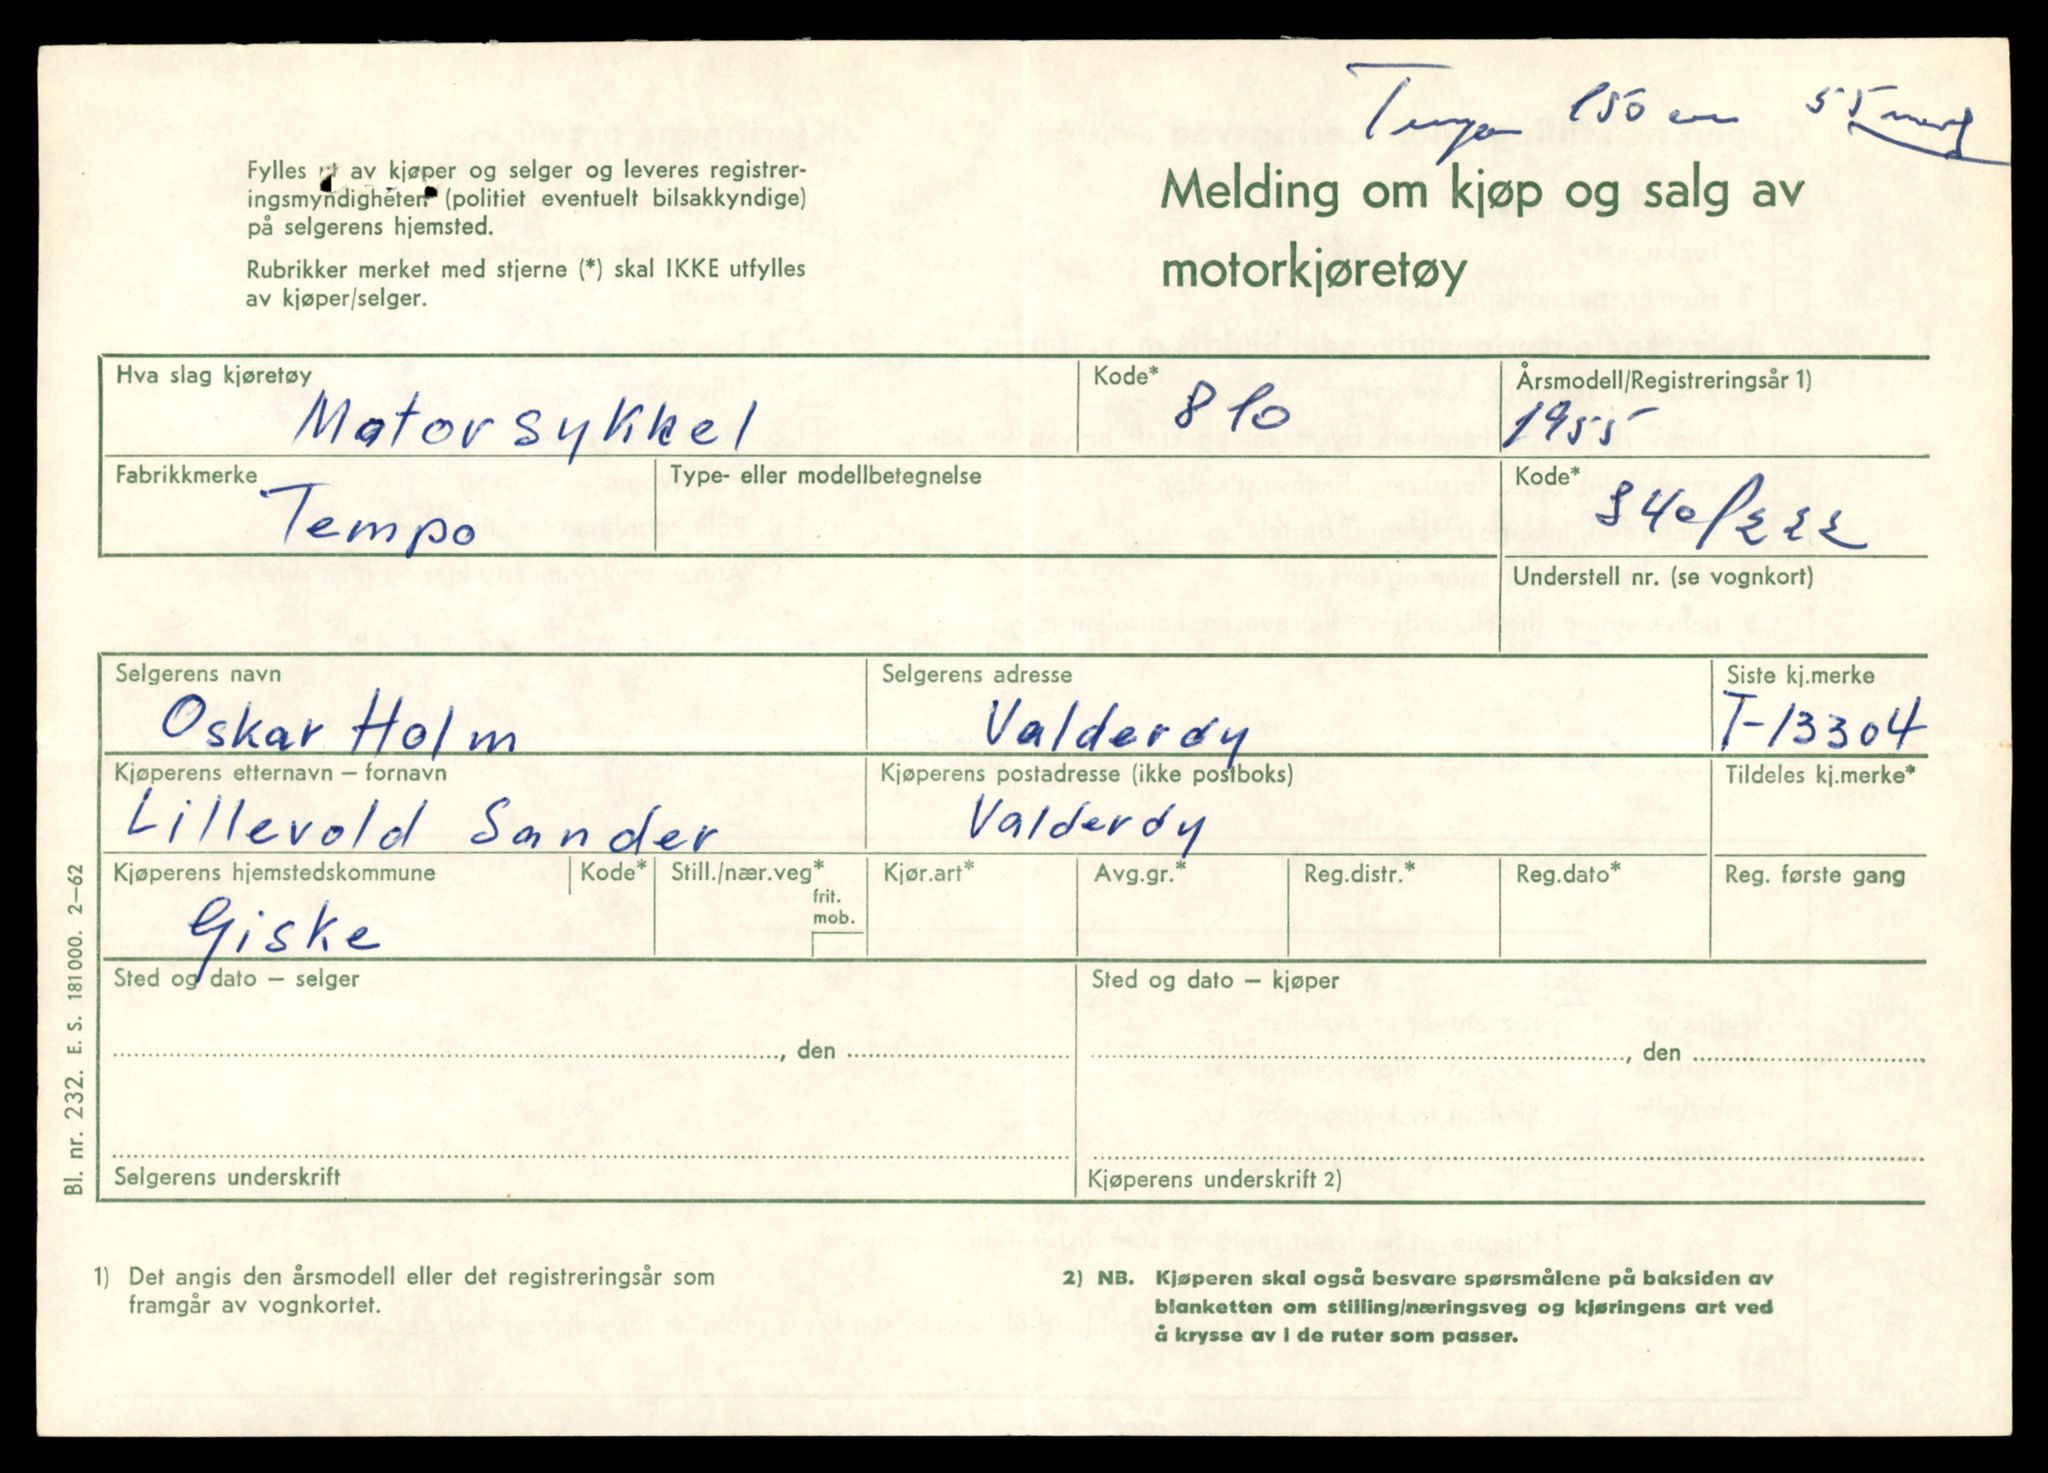 Tempo 150 cm 55 mod
Fylles ut av kjøper og selger og leveres registrer-
ingsmyndigheten (politiet eventuelt bilsakkyndige)
på selgerens hjemsted.
Rubrikker merket med stjerne (*) skal IKKE utfylles
av kjøper/selger.
Melding om kjøp og salg av
motorkjøretøy
Hva slag kjøretøy
Motorsykkel
Kode*
810
Årsmodell/Registreringsår 1)
1955
Fabrikkmerke
Tempo
Type- eller modellbetegnelse
Kode*
840/222
Understell nr. (se vognkort)
Selgerens navn
Oskar Holm
Selgerens adresse
Valderøy
Siste kj.merke
T-13304
Kjøperens etternavn – fornavn
Lillevold Sander
Kjøperens postadresse (ikke postboks)
Valderøy
Tildeles kj.merke*
Kjøperens hjemstedskommune
Giske
Kode*
Still./nær.veg*
frit.
mob.
Kjør.art*
Avg.gr.*
Reg.distr.*
Reg.dato*
Reg. første gang
Sted og dato – selger
, den
Selgerens underskrift
Sted og dato – kjøper
, den
Kjøperens underskrift 2)
Bl. nr. 232. E. S. 181000. 2–62
1) Det angis den årsmodell eller det registreringsår som
framgår av vognkortet.
2) NB. Kjøperen skal også besvare spørsmålene på baksiden av
blanketten om stilling/næringsveg og kjøringens art ved
å krysse av i de ruter som passer.